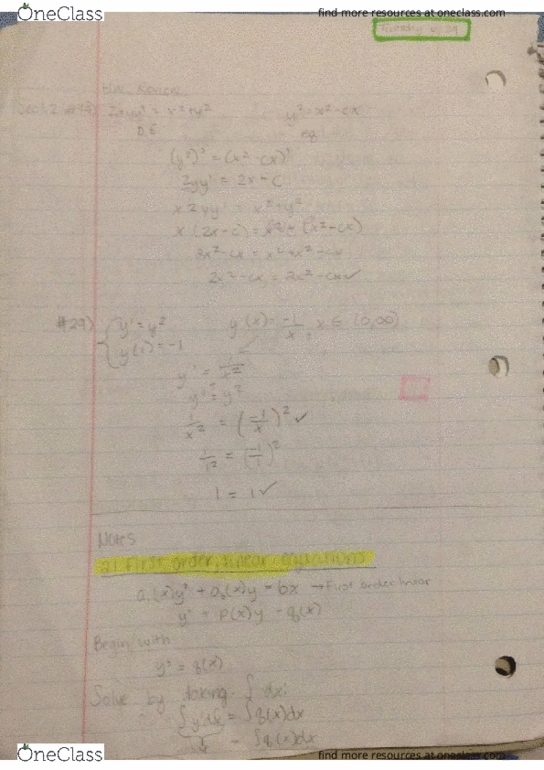 OneClass
find more resources at oneclass.com
HW Review
2xyy' = x²+y² y² = x² - cx
D.E. eq
(y²)' = (x² - cx)'
2yy' = 2x - c
x 2yy' = x² + y²
x (2x - c) = x² + (x² - cx)
2x² - cx = x² + x² - cx
2x² - cx = 2x² - cx ✓
#29) y' = y² y(x) = -1/x, x ∈ (0,∞)
y(1) = -1
y' = 1/x²
y' = y²
1/x² = (-1/x)² ✓
1/1² = (-1/1)²
1 = 1 ✓
Notes
2.1 First order, linear equations
a₁(x)y' + a₀(x)y = bx → First order linear
y' + p(x)y = q(x)
Begin with
y' = q(x)
Solve by taking ∫ dx:
∫y'dx = ∫q(x)dx
= ∫q(x)dx
OneClass
find more resources at oneclass.com